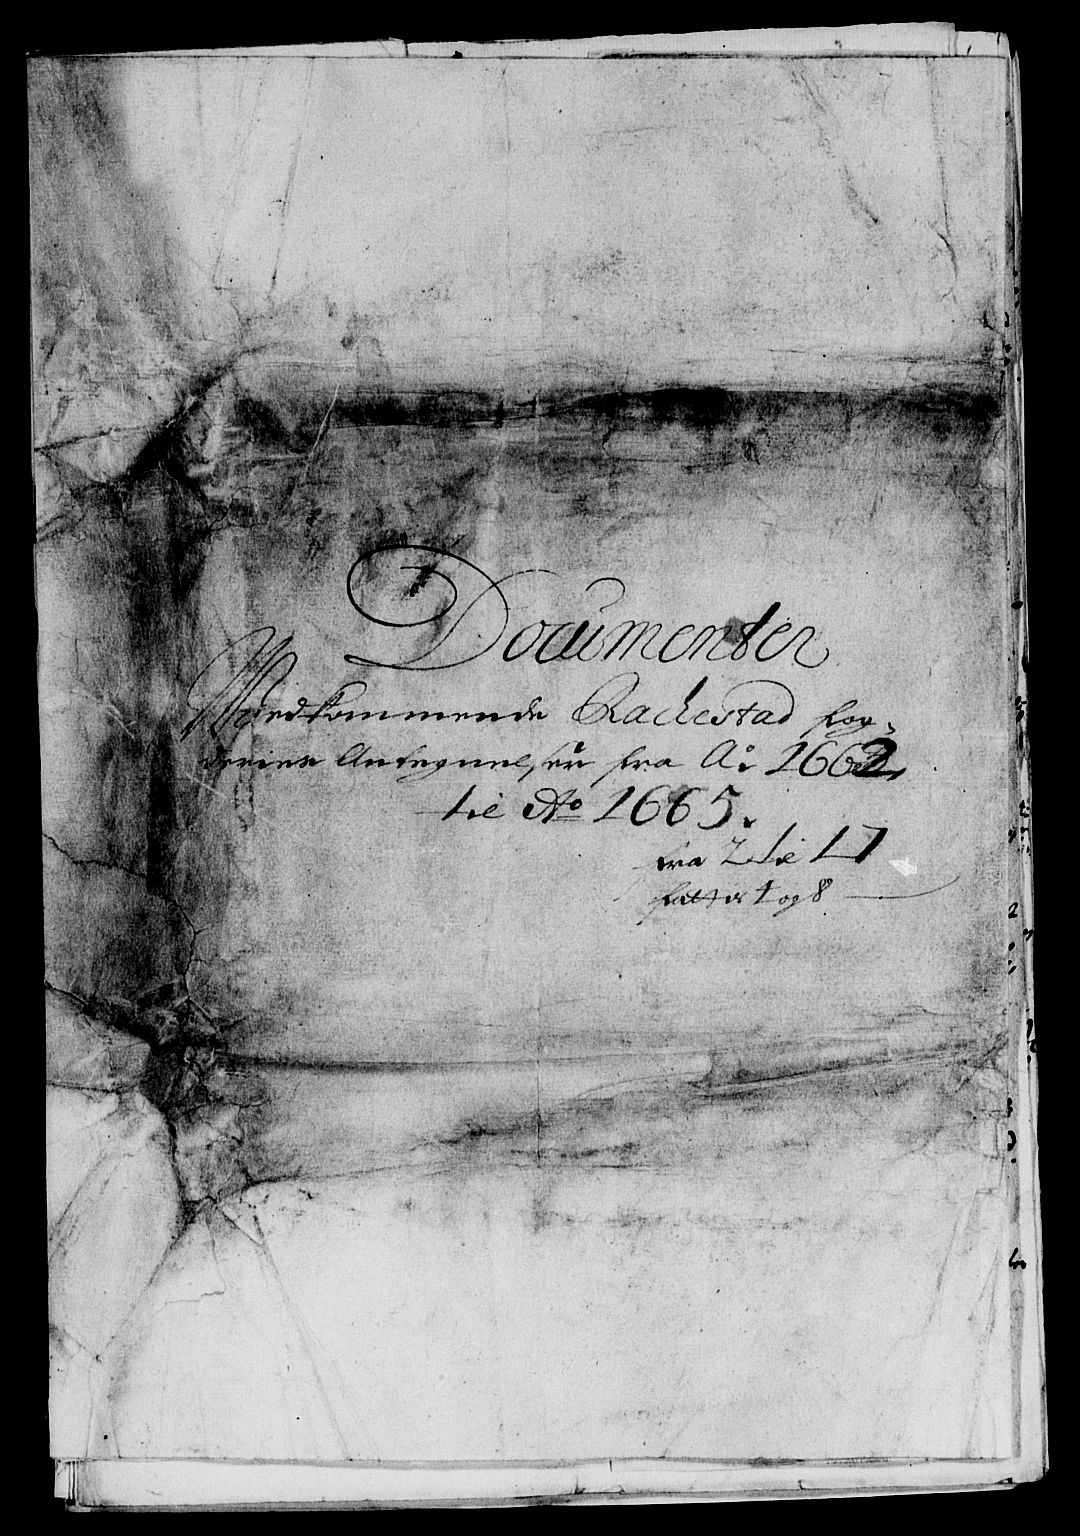 Documenter
Wedkommende Rachestad fog-
deries Antegnelser fra Ao 1662
til Ao 1665.
fra 2 til 17
fatter 1 og 8